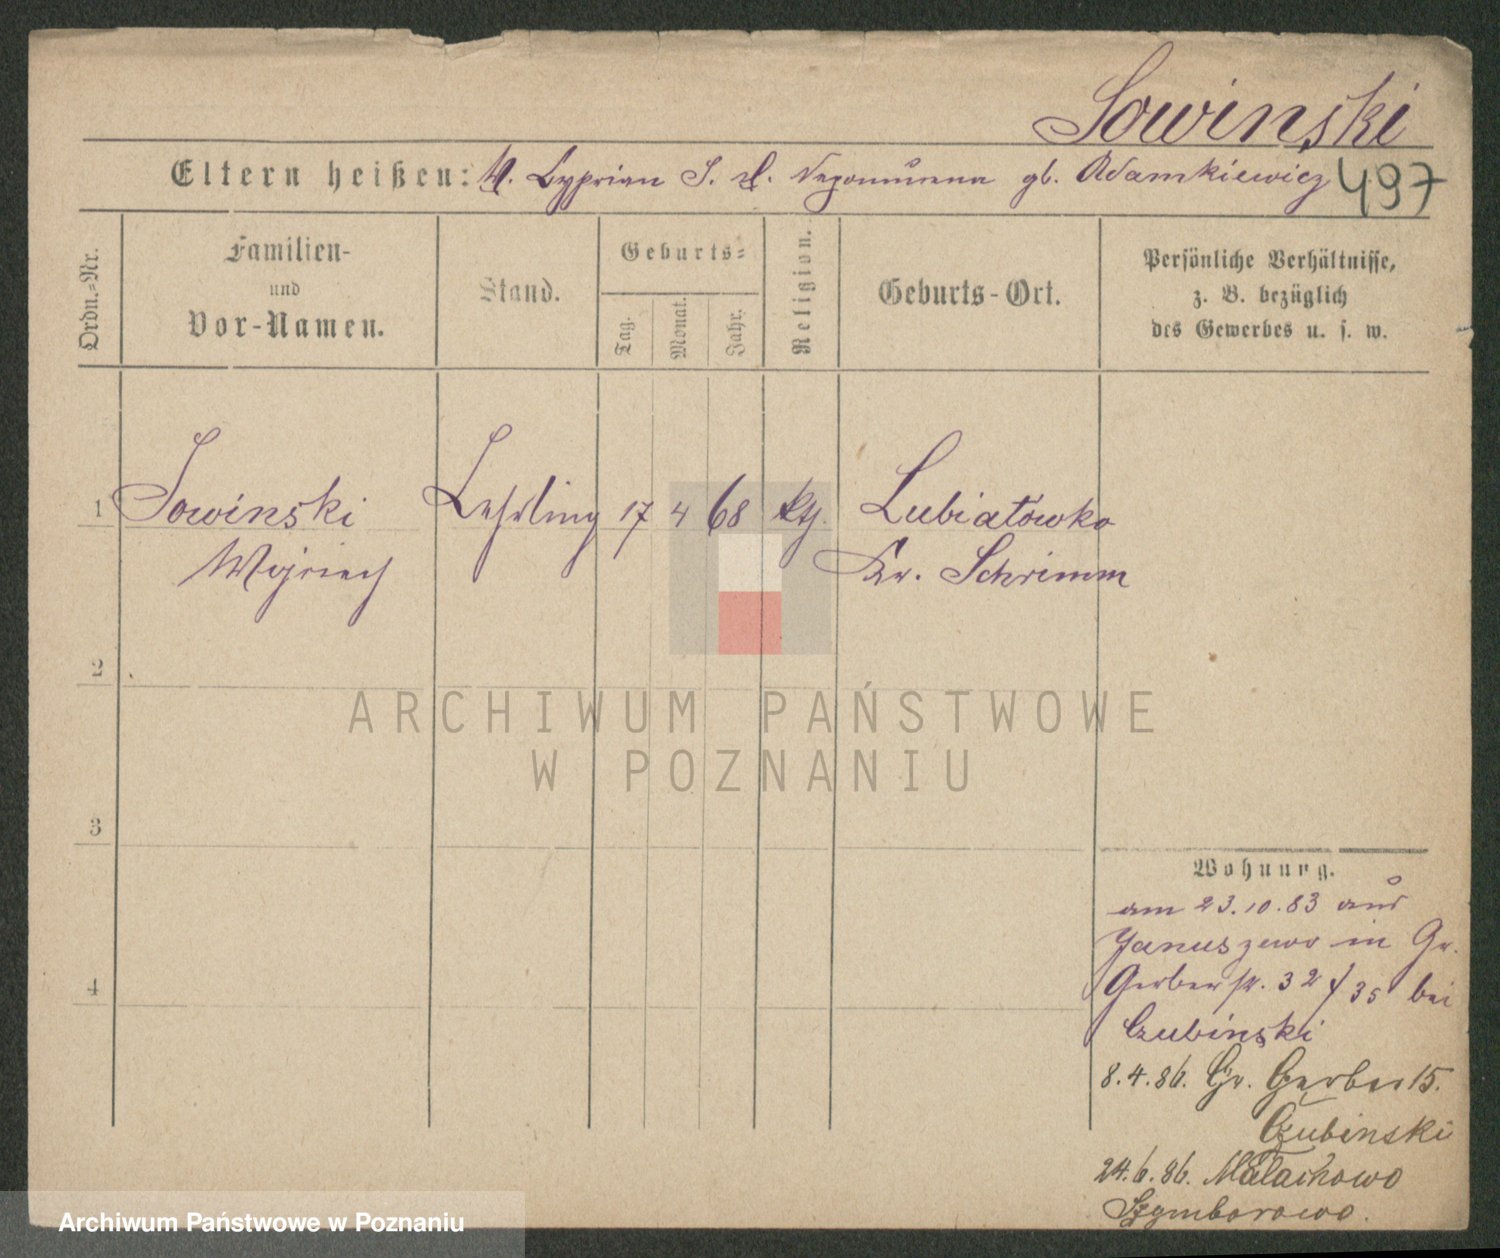 Sowinski
Eltern heißen: V. Cyprian S. M. Nepomucena gb. Adamkiewicz 497
Ordn.-Nr.
Familien-
und
Vor-Namen.
Stand.
Geburts-
Tag.
Monat.
Jahr.
Religion.
Geburts-Ort.
Persönliche Verhältnisse,
z. B. bezüglich
des Gewerbes u. s. w.
1 Sowinski Lehrling 17 4 68 kth. Lubiatówko
Wojciech Kr. Schrimm
2
ARCHIWUM PAŃSTWOWE
W POZNANIU
3
4
Wohnung.
am 23.10.83 aus
Januszewo in Gr.
Gerberstr. 32/35 bei
Czubinski
8.4.86. Gr. Gerber 15.
Czubinski
24.6.86. Małachowo
Szymborowo.
Archiwum Państwowe w Poznaniu